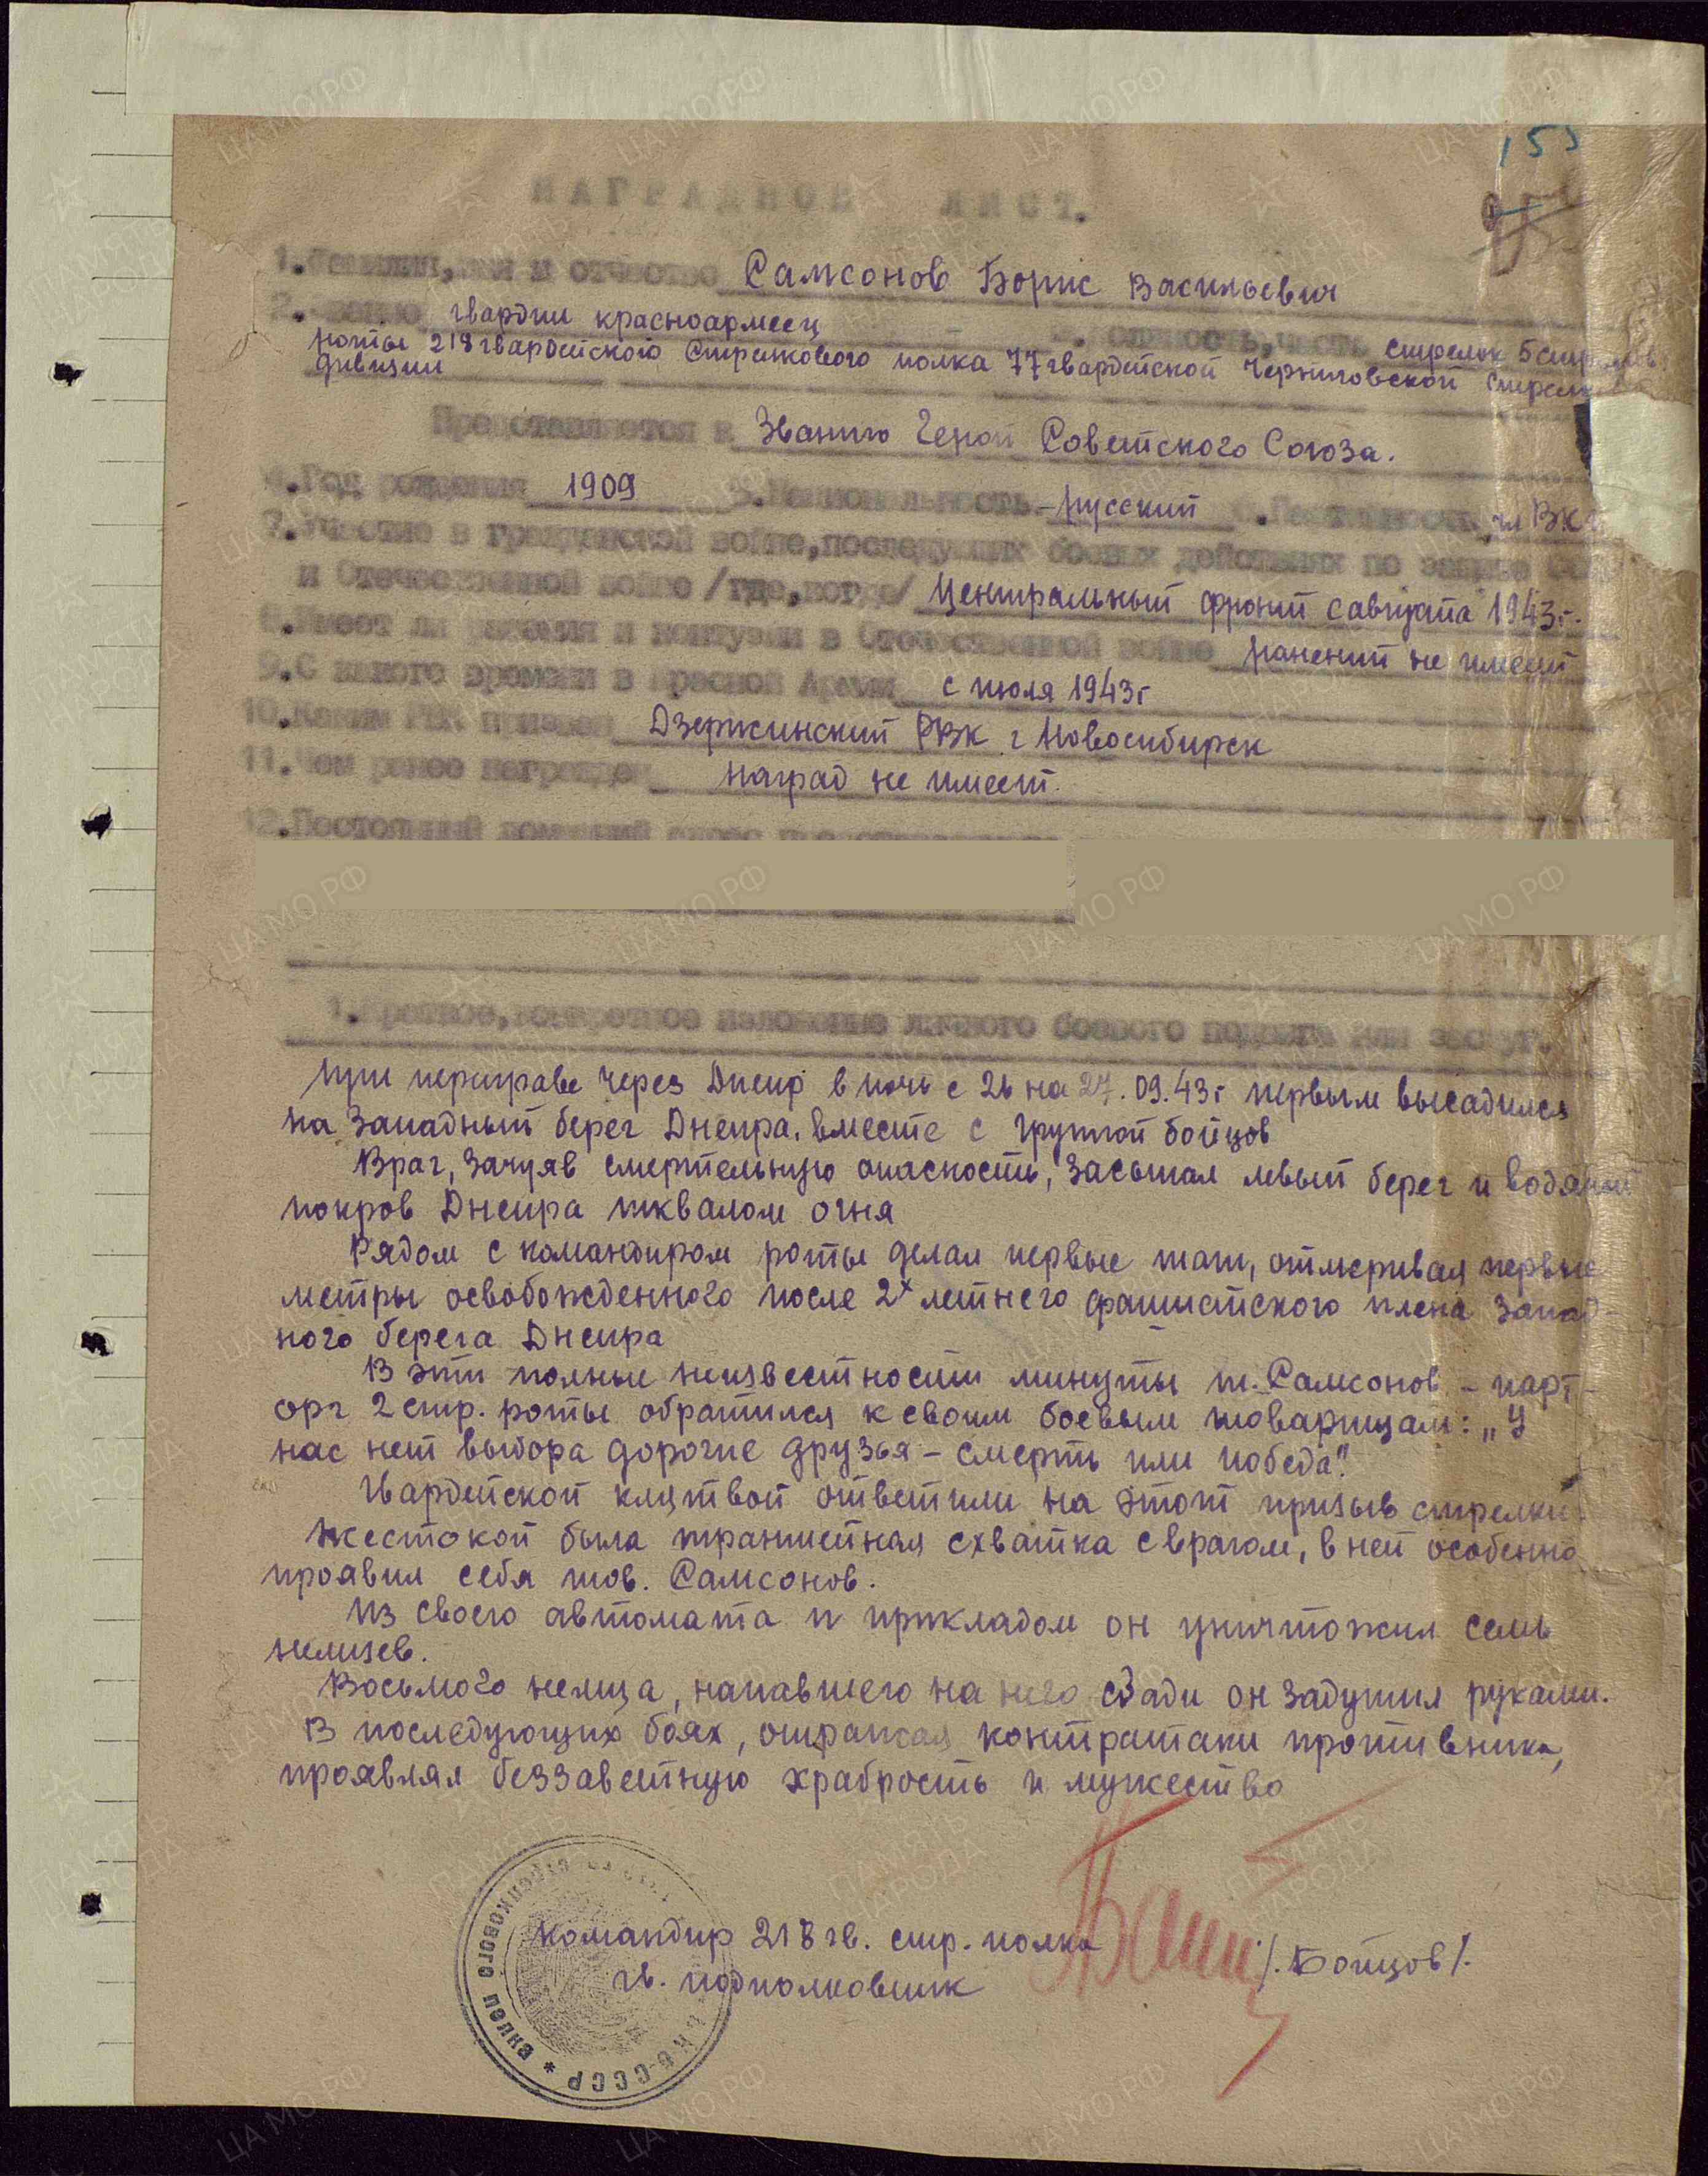 155
НАГРАДНОЙ ЛИСТ.
1.Фамилия,имя и отчество Самсонов Борис Васильевич
2.Звание гвардии красноармеец 3.Должность,часть стрелок 5 стрелков.
роты 218 гвардейского Стрелкового полка 77 гвардейской Черниговской Стрелк
дивизии
Представляется к Званию Герой Советского Союза.
4.Год рождения 1909 5.Национальность -русский 6.Партийность чл ВК
7.Участие в гражданской войне,последующих боевых действиях по защите
и Отечественной войне /где,когда/ Центральный фронт с августа 1943г.
8.Имеет ли ранения и контузии в Отечественной войне ранений не имеет
9.С какого времени в Красной Армии с июля 1943г
10.Каким РВК призван Дзержинский РВК г Новосибирск
11.Чем ранее награжден наград не имеет.
12.Постоянный домашний адрес
1.Краткое,конкретное изложение личного боевого подвига или заслуг.
При переправе через Днепр в ночь с 26 на 27.09.43г первым высадился
на Западный берег Днепра. вместе с группой бойцов
Враг, зачуяв смертельную опасность, засыпал левый берег и водяной
покров Днепра шквалом огня
Рядом с командиром роты делал первые шаги, отмеривая первые
метры освобожденного после 2х летнего фашистского плена запад-
ного берега Днепра
В эти полные неизвестности минуты т. Самсонов - парт-
орг 2 стр. роты обратился к своим боевым товарищам: „У
нас нет выбора дорогие друзья - смерть или победа".
Гвардейской клятвой ответили на этот призыв стрелки.
Жестокой была траншейная схватка с врагом, в ней особенно
проявил себя тов. Самсонов.
Из своего автомата и прикладом он уничтожил семь
немцев.
Восьмого немца, напавшего на него сзади он задушил руками.
В последующих боях, отражая контратаки противника,
проявлял беззаветную храбрость и мужество
Командир 218 гв. стр. полка
гв. подполковник /.Бойцов/.